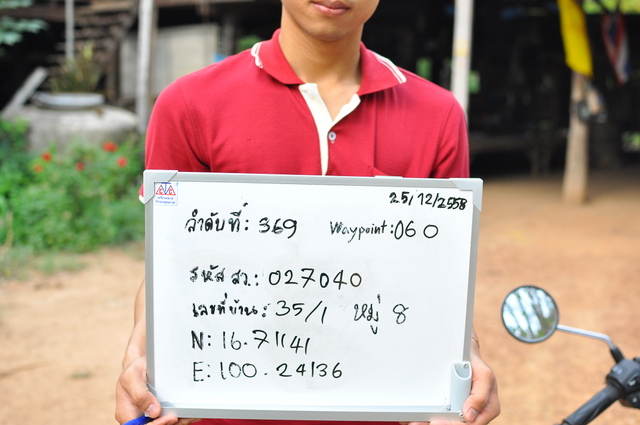 25/12/2558
ลำดับที่: 369 Waypoint: 060
รหัส สว.: 027040
เลขที่บ้าน: 35/1 หมู่ 8
N: 16.71141
E: 100.24136